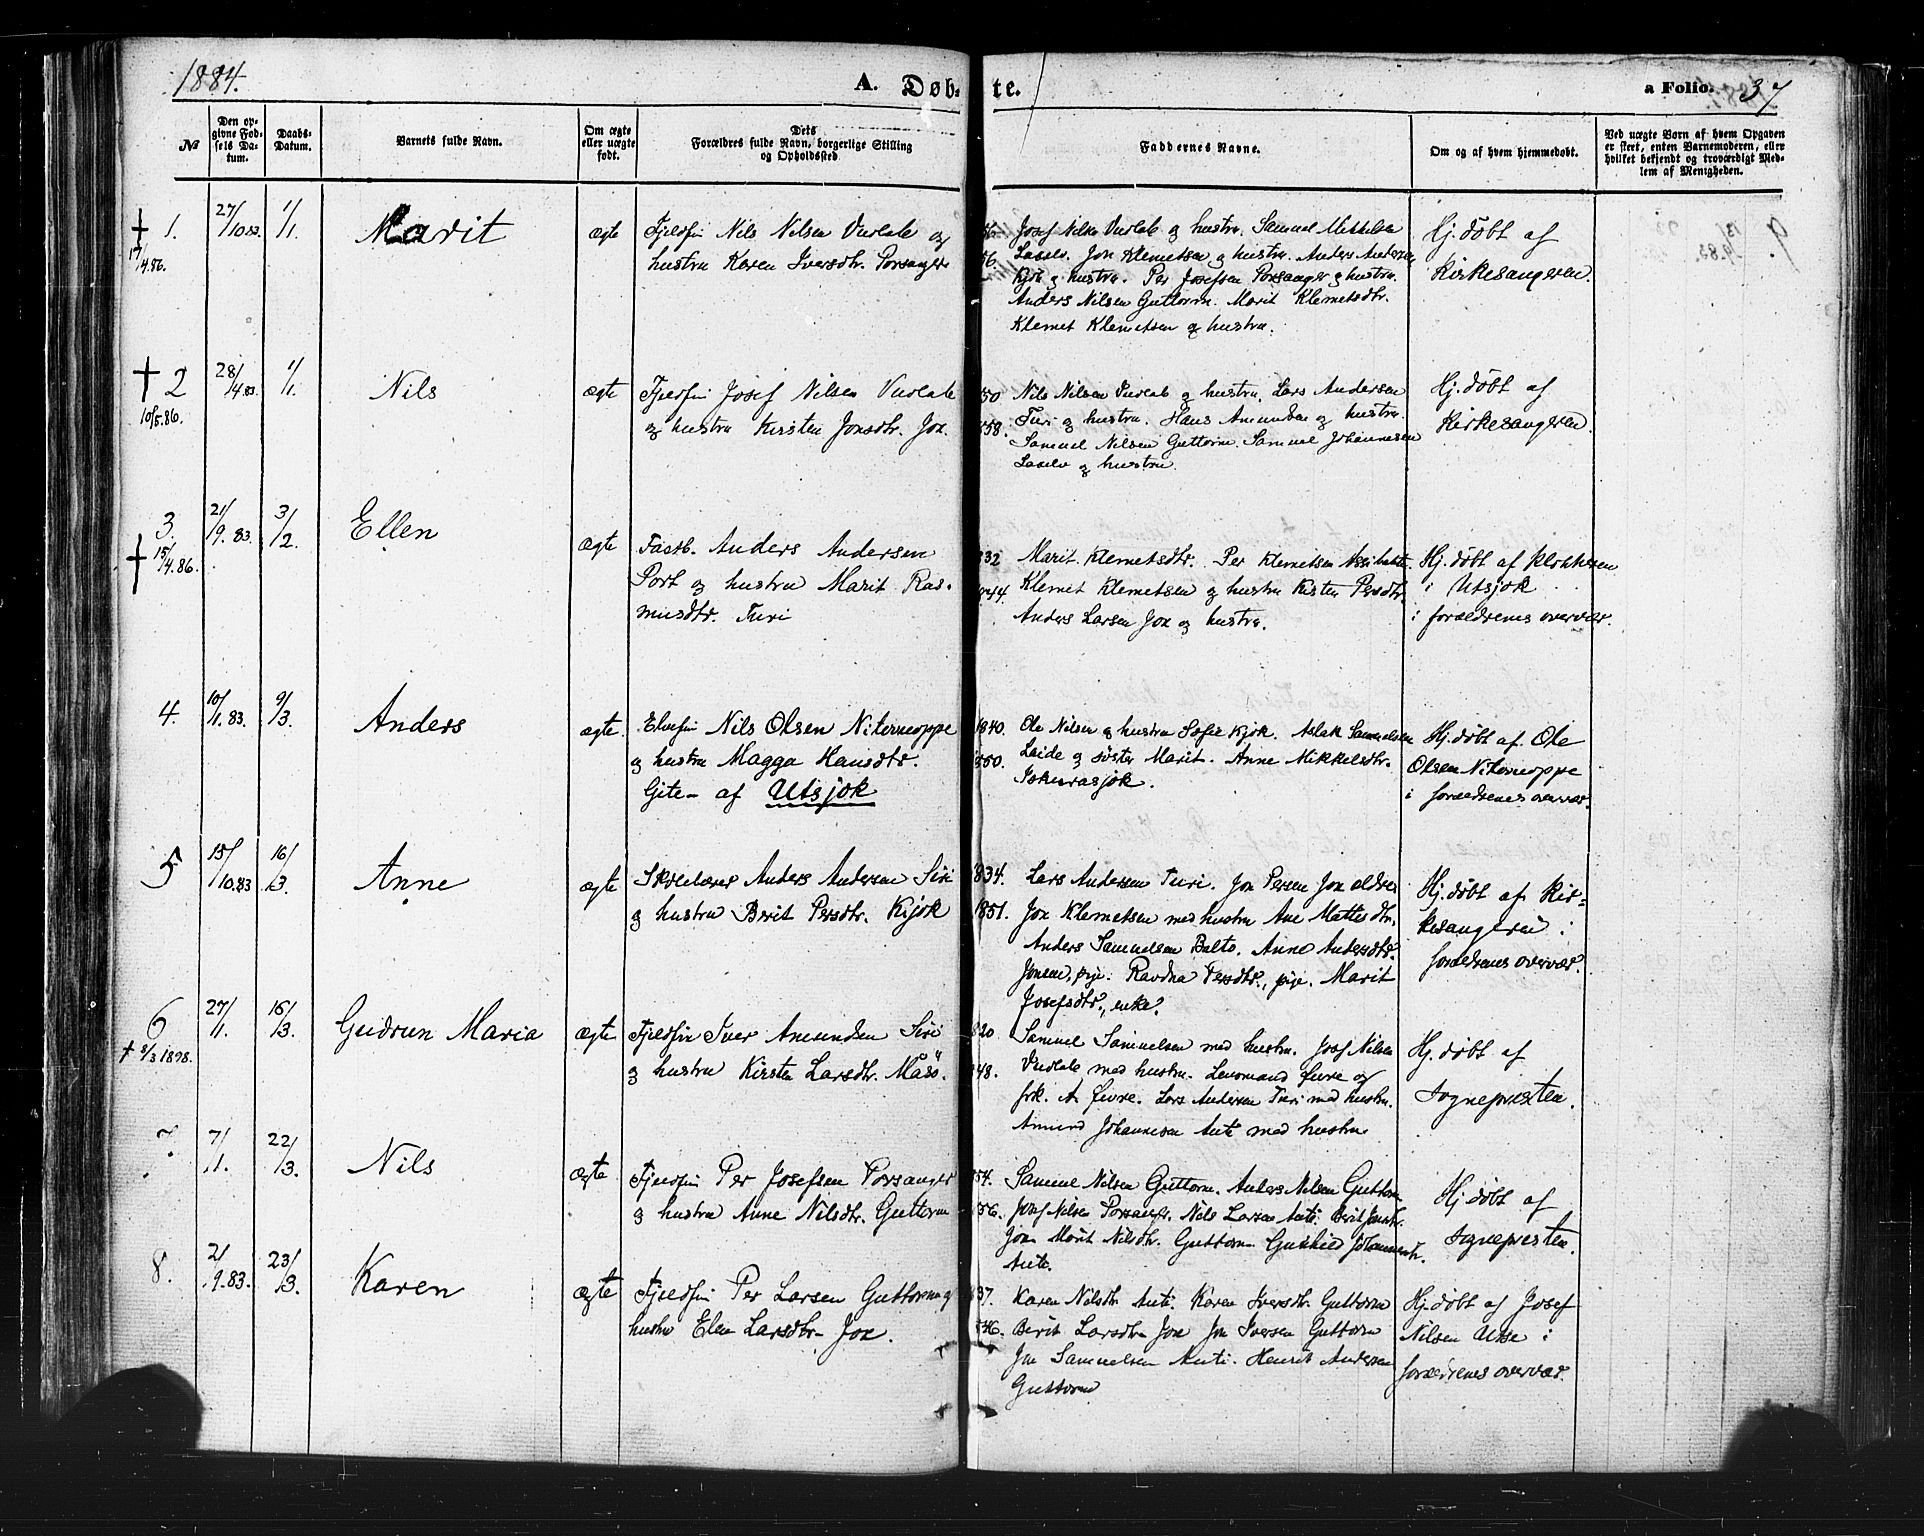 1884.
A. Døb-
te.
a Folio. 37
№
Den op-
givne Fød-
sels Da-
tum.
Daabs-
Datum.
Barnets fulde Navn.
Om ægte
eller uægte
født.
Dets
Forældres fulde Navn, borgerlige Stilling
og Opholdssted.
Faddernes Navne.
Om og af hvem hjemmedøbt.
Ved uægte Børn af hvem Opgaven
er skeet, enten Barnemoderen, eller
hvilket bekjendt og troværdigt Med-
lem af Menigheden.
† 1.
17/4.86.
27/10 83.
1/1.
Marit
ægte
Fjeldfin Nils Nilsen Vuolab og
hustru Karen Iversdtr. Porsanger
56.
56.
Josef Nilsen Vuolab og hustru. Samuel Mikkelsen
Jon Klemetsen og hustru. Anders Andersen
Kjok og hustru. Per Josefsen Porsanger og hustru.
Anders Nilsen Guttorm. Marit Klemetsdtr.
Klemet Klemetsen og hustru.
Hj. døbt af
Kirkesangeren.
† 2
10/5.86.
28/4.83.
1/1.
Nils
ægte
Fjeldfin Josef Nilsen Vuolab
og hustru Kirsten Jonsdtr. Jox.
50
58.
Nils Nilsen Vuolab og hustru. Lars Andersen
Turi og hustru. Hans Amundsen og hustru.
Samuel Nilsen Guttorm. Samuel Johannesen
og hustru.
Hj. døbt af
Kirkesangeren.
3.
† 15/4.86.
21/9. 83.
3/2.
Ellen
ægte
Fastb. Anders Andersen
Port og hustru Marit Ras-
musdtr. Turi
832
44.
Marit Klemetsdtr. Per Klemetsen
Klemet Klemetsen og hustru Kirsten Persdtr.
Anders Larsen Jox og hustru.
Hj. døbt af Klokkeren
i Utsjok
i forældrenes overvær.
4.
10/11.83.
9/3.
Anders
ægte.
Elvefin Nils Olsen Niterneoppe
og hustru Magga Hansdtr.
Gite- af Utsjok
1840.
1850.
Ole Nilsen og hustru Sofie Kjok. Aslak Samuelsen
Laide og søster Marit. Anne Mikkelsdtr.
Hj. døbt af Ole
Olsen Niterneoppe
i forældrenes overvær.
5
15/10.83
16/3.
Anne
ægte
Skolelærer Anders Andersen Siri
og hustru Berit Persdtr. Kijok
834.
1851.
Lars Andersen Turi. Jon Persen Jox ældre
Jon Klemetsen med hustru Ane Mattisdtr.
Anders Samuelsen Balto. Anne Andersdtr.
Jonsen, pige. Ravdna Persdtr., pige. Marit
Josefsdtr., enke.
Hj. døbt af Kir-
kesangeren i
forældrenes overvær.
6
† 8/3 1898.
27/1.
16/3.
Gudrun Maria
ægte
Fjeldfin Iver Amundsen Siri
og hustru Kirsten Larsdtr. Måsö.
820
48.
Samuel Samuelsen med hustru. Josef Nilsen
Vuolab med hustru. Lensmand Fevre og
frk. A. Fevre. Lars Andersen Turi med hustru.
Amund Johannesen Anti med hustru
Hj. døbt af
Sognepresten.
7.
7/1.
22/3.
Nils
ægte
Fjeldfin Per Josefsen Porsanger
og hustru Anne Nilsdtr. Guttorm
854.
856.
Samuel Nilsen Guttorm. Anders Nilsen Guttorm
Josef Nilsen Porsanger. Nils Larsen Anti. Berit Jonsdtr.
Jox Marit Nilsdtr. Guttorm Johannesdtr.
Anti.
Hj. døbt af
Sognepresten.
8.
21/9.83.
23/3.
Karen
ægte
Fjeldfin Per Larsen Guttorm og
hustru Elen Larsdtr. Jox.
837.
846.
Karen Nilsdtr Anti. Karen Iversdtr. Guttorm
Berit Larsdtr Jox Jon Iversen Guttorm
Jon Samuelsen Anti. Henrik Andersen
Guttorm
Hj. døbt af Josef
Nilsen Utse i
forældrenes overvær.